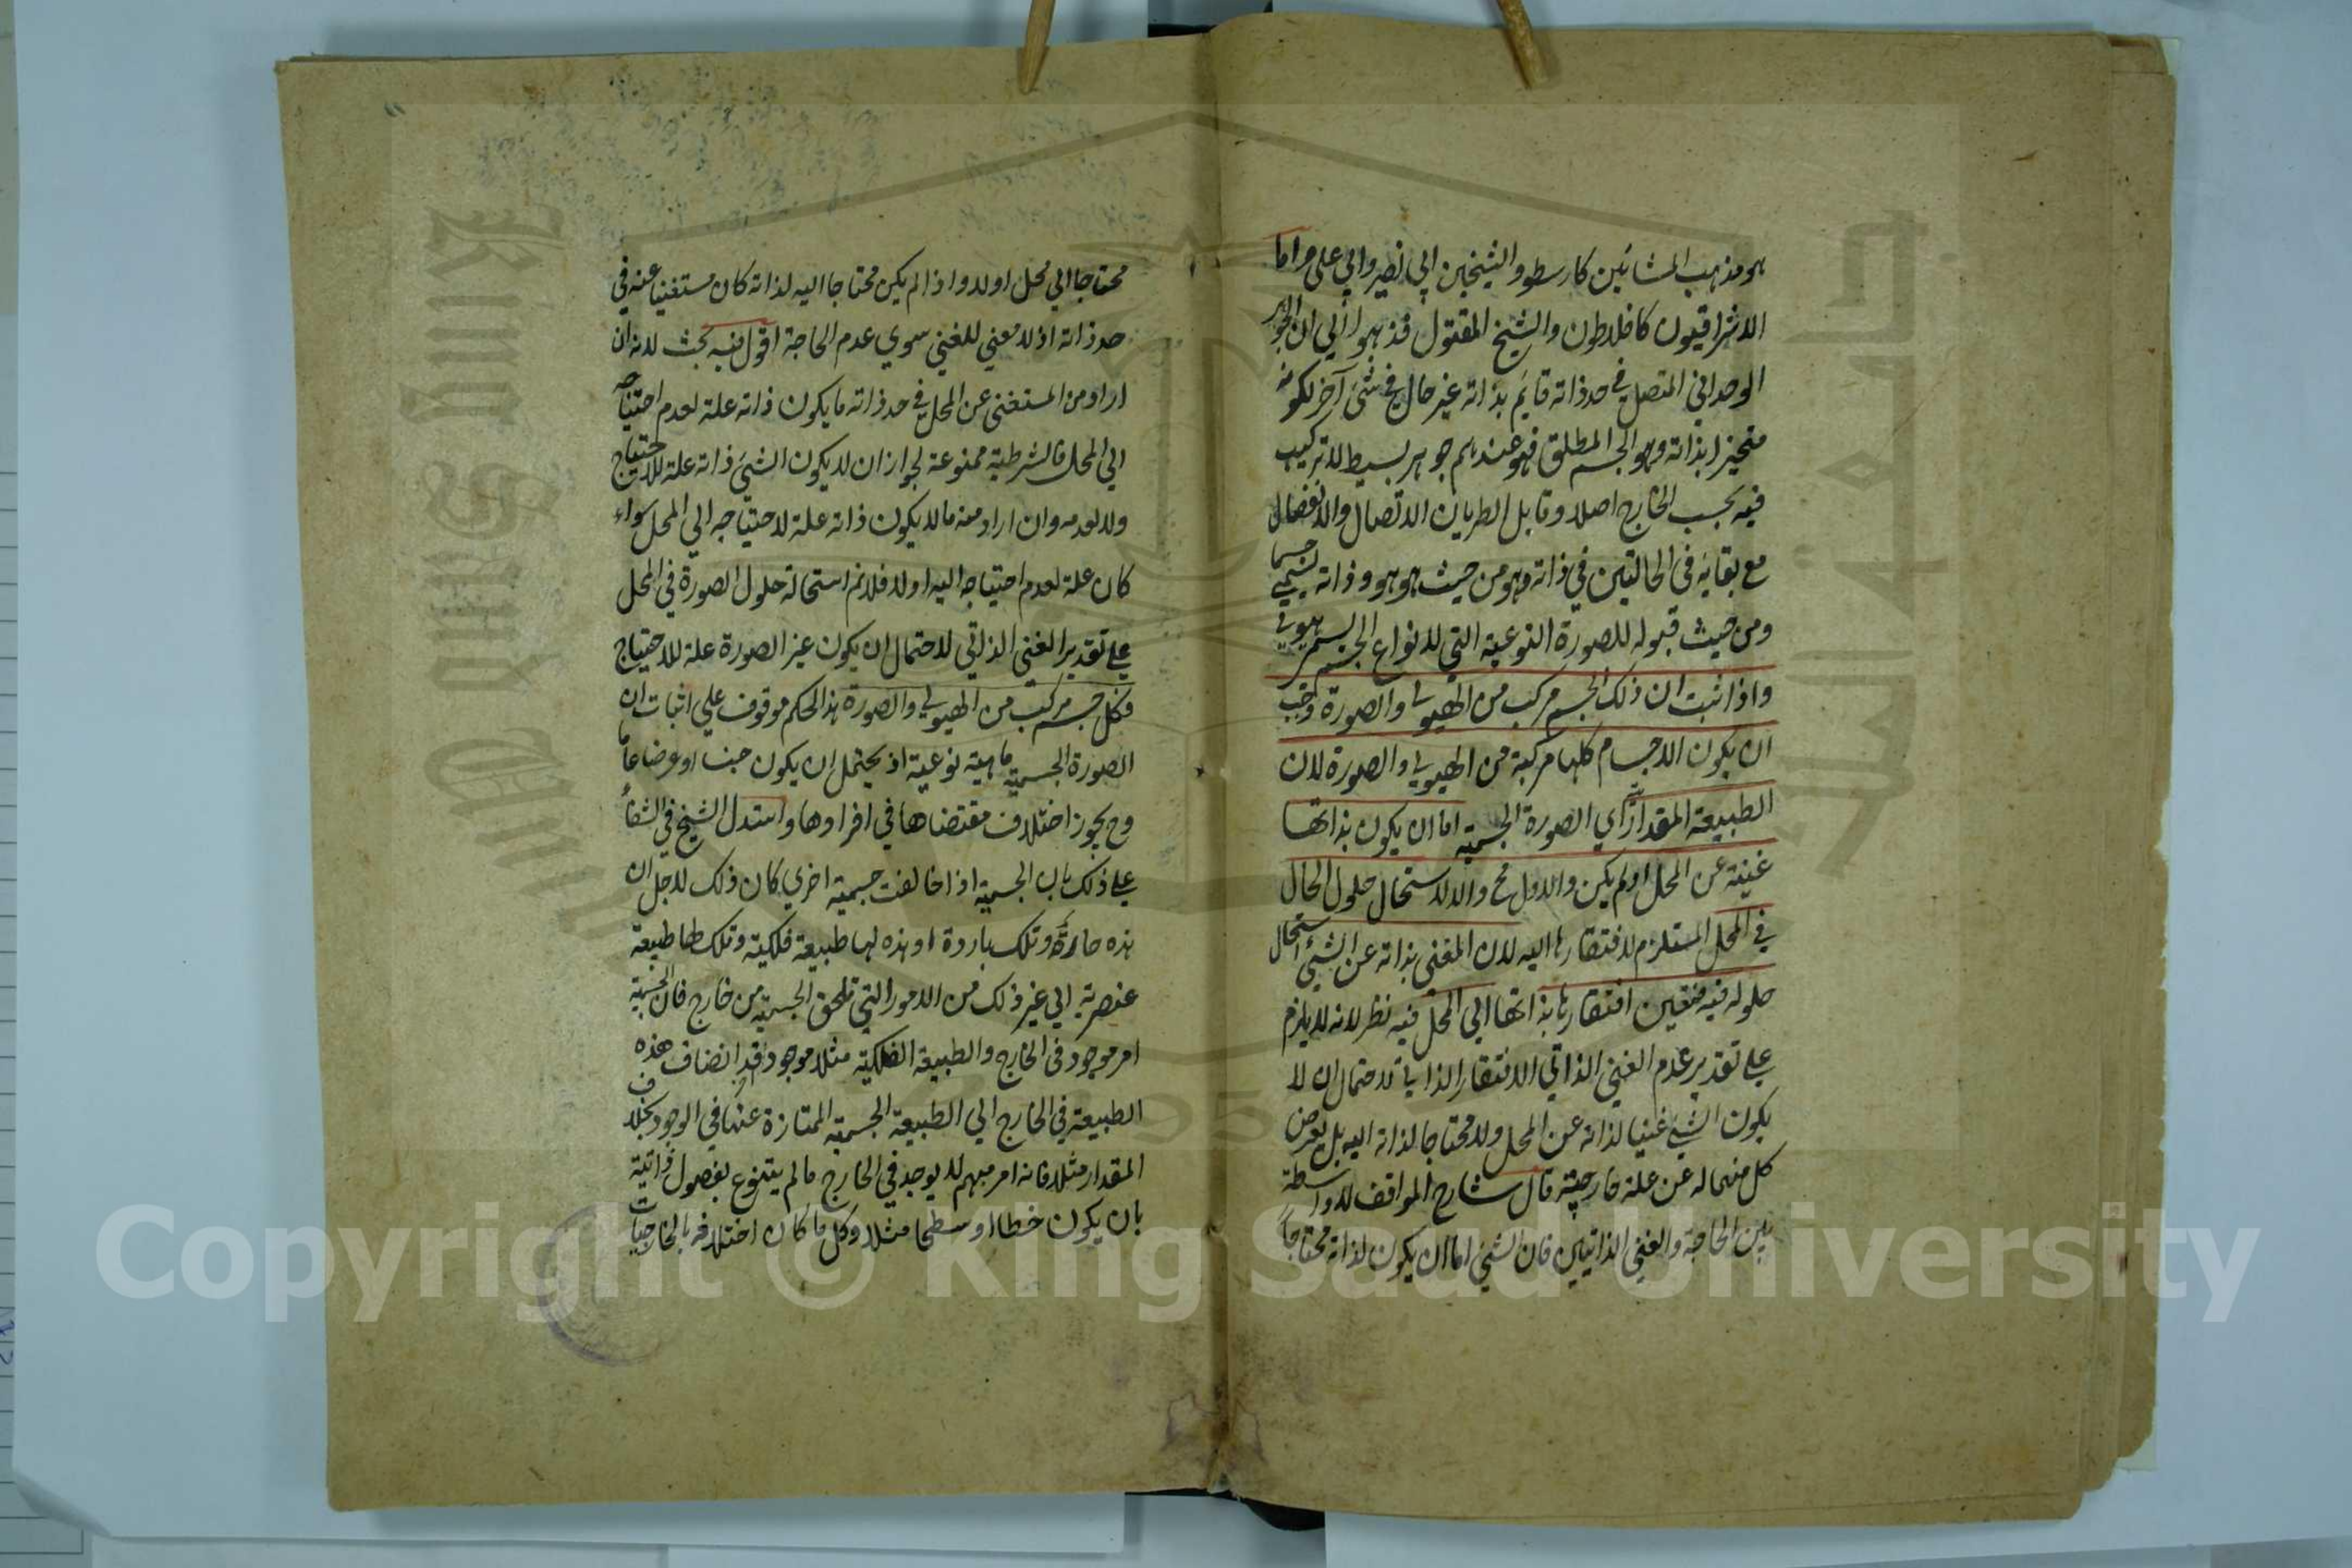 هو مذهب المشائين كارسطو والشيخين ابي نصر وابي علي واما
الاشراقيون كافلاطون والشيخ المقتول فذهبوا الي ان الجوهر
الوحداني المتصل في حد ذاته قايم بذاته غير حال في شئ آخر لكونه
متحيزا بذاته وهو الجسم المطلق فهو عندهم جوهر بسيط لا تركيب
فيه بحسب الخارج اصلا وقابل لطريان الاتصال والانفصال
مع بقائه في الحالتين في ذاته وهو من حيث هو هو وذاته يسمي جسما
ومن حيث قبوله للصورة النوعية التي لانواع الجسم يسمي هيولي
واذا ثبت ان ذلك الجسم مركب من الهيولي والصورة وجب
ان يكون الاجسام كلها مركبة من الهيولي والصورة لان
الطبيعة المقدارية اي الصورة الجسمية اما ان يكون بذاتها
غنية عن المحل او لم يكن والاول مح والا لاستحال حلول الحال
في المحل المستلزم لافتقارها اليه لان الغني بذاته عن الشئ استحال
حلوله فيه فتعين افتقارها بذاتها الي المحل فيه نظر لانه لا يلزم
علي تقدير عدم الغني الذاتي الافتقار الذاتي لاحتمال ان لا
يكون الشئ غنيا لذاته عن المحل ولا محتاجا لذاته اليه بل يعرض
كل منهما له عن علة خارجية قال شارح المواقف لا واسطة
بين الحاجة والغني الذاتيين فان الشئ اما ان يكون لذاته محتاجا
محتاجا الي محل او لا واذا لم يكن محتاجا اليه لذاته كان مستغنيا عنه في
حد ذاته اذ لا معني للغني سوي عدم الحاجة اقول فيه بحث لانه ان
اراد من المستغني عن المحل في حد ذاته ما يكون ذاته علة لعدم احتياجه
الي المحل فالشرطية ممنوعة لجواز ان لا يكون الشئ ذاته علة للاحتياج
ولا لعدمه وان اراد منه ما لا يكون ذاته علة لاحتياجه الي المحل سواء
كان علة لعدم احتياجه اليه او لا فلا نم استحالة حلول الصورة في المحل
علي تقدير الغني الذاتي لاحتمال ان يكون غير الصورة علة للاحتياج
فكل جسم مركب من الهيولي والصورة هذا الحكم موقوف علي اثبات ان
الصورة الجسمية ماهية نوعية اذ يحتمل ان يكون جنسا او عرضا عاما
وح يجوز اختلاف مقتضاها في افرادها واستدل الشيخ في الشفاء
علي ذلك بان الجسمية اذا خالفت جسمية اخري كان ذلك لاجل ان
هذه حارة وتلك باردة او هذه لها طبيعة فلكية وتلك لها طبيعة
عنصرية الي غير ذلك من الامور التي تلحق الجسمية من خارج فان الجسمية
امر موجود في الخارج والطبيعة الفلكية مثلا موجود قد انضاف هذه
الطبيعة في الخارج الي الطبيعة الجسمية الممتازة عنها في الوجود بخلاف
المقدار مثلا فانه امر مبهم لا يوجد في الخارج ما لم يتنوع بفصول ذاتية
بان يكون خطا او سطحا مثلا وكل ما كان اختلافه بالخارجيات
Copyright © King Saud University